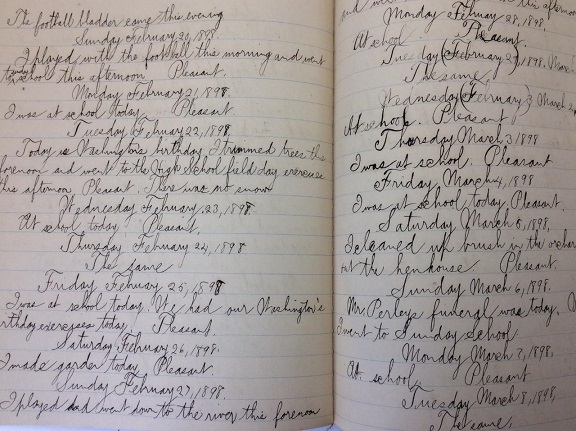 The football bladder came this evening
Sunday February 20, 1898.
I played with the football this morning and went
to school this afternoon. Pleasant.
Monday February 21, 1898.
I was at school today. Pleasant
Tuesday February 22, 1898.
Today is Washington's birthday I trimmed trees this
forenoon and went to the High School field day exercise
this afternoon Pleasant. There was no snow
Wednesday February 23, 1898.
At school today Pleasant.
Thursday February 24, 1898
The same
Friday February 25, 1898
I was at school today. We had our Washington's
birthday exercises today Pleasant.
Saturday February 26, 1898.
I made garden today. Pleasant.
Sunday February 27, 1898.
I played and went down to the river this forenoon
Monday February 28, 1898.
At school Pleasant.
Tuesday (February 29) 1898. March
The same.
Wednesday (February) 1898. March
At school. Pleasant
Thursday March 3 1898
I was at school. Pleasant
Friday March 4, 1898
I was at school today. Pleasant.
Saturday March 5, 1898,
I cleaned up brush in the orchar
out the henhouse. Pleasant.
Sunday March 6, 1898.
Mr. Perleys funeral was today.
I went to Sunday School
Monday March 7, 1898,
At school, Pleasant
Tuesday March 8, 1898,
The same.